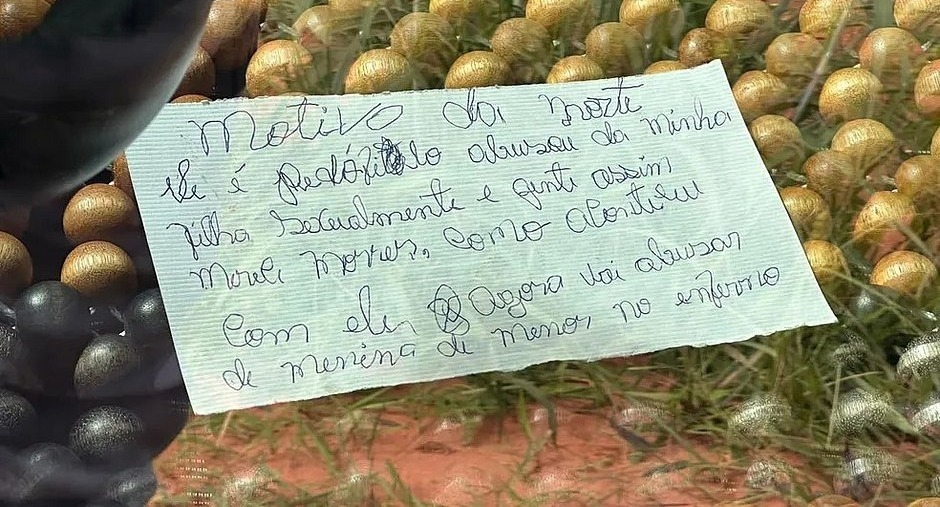 Motivo da morte
ele é pedófilo abusou da minha
filha Sexualmente e gente assim
Mereci morrer, como aconteceu
Com ele Agora vai abusar
de menina de menor no enferno